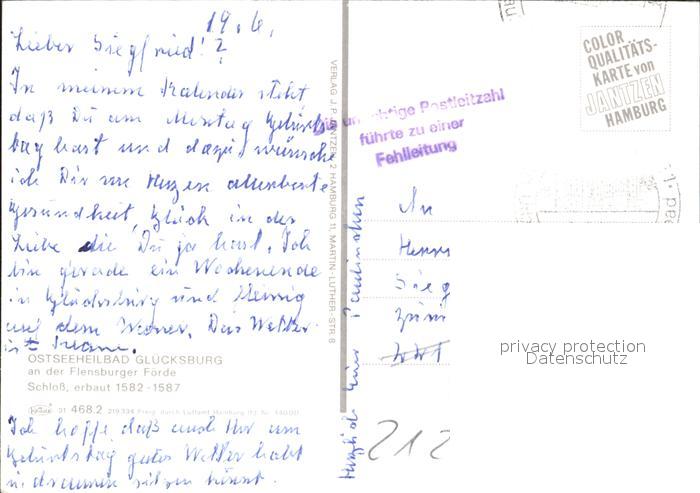 19.6.
Lieber Siegfried!
In meinem Kalender steht
daß Du am Montag Geburts
tag hast und dazu wünsche
ich Dir von Herzen allerbeste
Gesundheit, Glück in der
Liebe die Du ja hast. Ich
bin gerade ein Wochenende
in Glücksburg und Hennig
auf dem Wasser. Das Wetter
ist
OSTSEEHEILBAD GLÜCKSBURG
an der Flensburger Förde
Schloß, erbaut 1582 -1587
01 468.2 219.334 Freig. durch Luftamt Hamburg
Ich hoffe daß auch Ihr am
Geburtstag gutes Wetter habt
u. draussen sitzen könnt.
VERLAG J. P. JANTZEN, 2 HAMBURG 11, MARTIN-LUTHER-STR. 8
Herzlich Eine
unrichtige Postleitzahl
führte zu einer
Fehlleitung
COLOR
QUALITÄTS-
KARTE von
JANTZEN
HAMBURG
An
Herrn
Sieg
212
privacy protection
Datenschutz